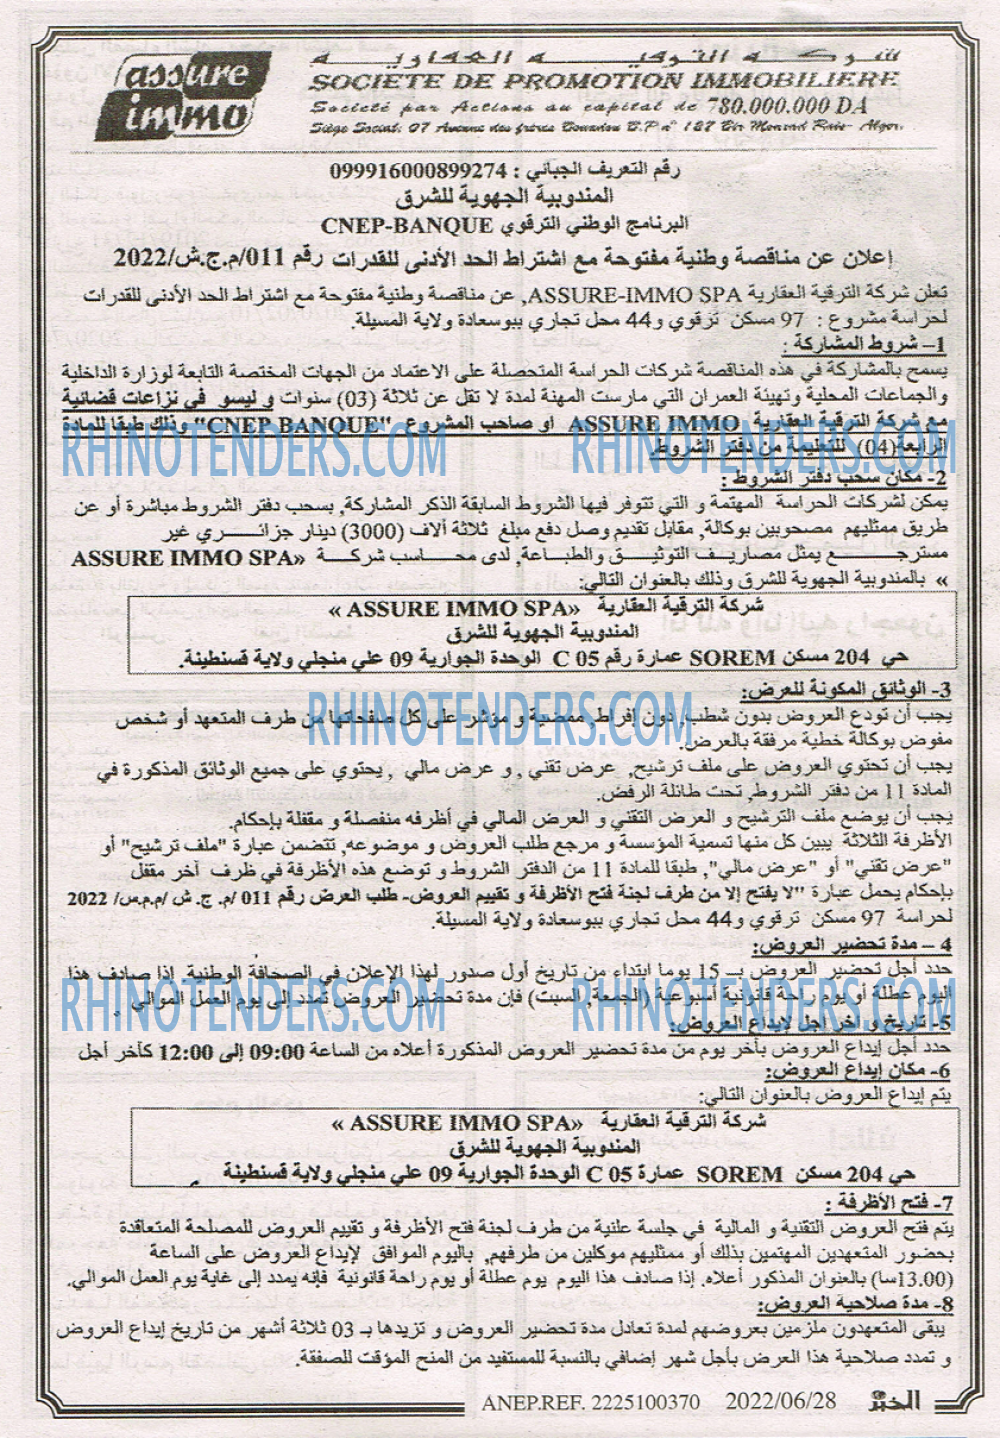 assure immo
شركة الترقية العقارية
SOCIETE DE PROMOTION IMMOBILIERE
Société par Actions au capital de 780.000.000 DA
Siège Social: 07 Avenue des frères Bouadou B.P n° 187 Bir Mourad Rais- Alger.
رقم التعريف الجبائي : 099916000899274
المندوبية الجهوية للشرق
البرنامج الوطني الترقوي CNEP-BANQUE
إعلان عن مناقصة وطنية مفتوحة مع اشتراط الحد الأدنى للقدرات رقم 011/م.ج.ش/2022
تعلن شركة الترقية العقارية ASSURE-IMMO SPA, عن مناقصة وطنية مفتوحة مع اشتراط الحد الأدنى للقدرات
لحراسة مشروع : 97 مسكن ترقوي و44 محل تجاري ببوسعادة ولاية المسيلة.
1– شروط المشاركة :
يسمح بالمشاركة في هذه المناقصة شركات الحراسة المتحصلة على الاعتماد من الجهات المختصة التابعة لوزارة الداخلية
والجماعات المحلية وتهيئة العمران التي مارست المهنة لمدة لا تقل عن ثلاثة (03) سنوات و ليسو في نزاعات قضائية
مع شركة الترقية العقارية ASSURE IMMO او صاحب المشروع "CNEP BANQUE" وذلك طبقا للمادة
الرابعة(04) للتعليمة من دفتر الشروط.
2- مكان سحب دفتر الشروط :
يمكن لشركات الحراسة المهتمة و التي تتوفر فيها الشروط السابقة الذكر المشاركة, بسحب دفتر الشروط مباشرة أو عن
طريق ممثليهم مصحوبين بوكالة, مقابل تقديم وصل دفع مبلغ ثلاثة ألاف (3000) دينار جزائري غير
مسترجع يمثل مصاريف التوثيق والطباعة, لدى محاسب شركة «ASSURE IMMO SPA
» بالمندوبية الجهوية للشرق وذلك بالعنوان التالي:
شركة الترقية العقارية «ASSURE IMMO SPA »
المندوبية الجهوية للشرق
حي 204 مسكن SOREM عمارة رقم C 05 الوحدة الجوارية 09 علي منجلي ولاية قسنطينة.
3- الوثائق المكونة للعرض:
يجب أن تودع العروض بدون شطب, دون إفراط, ممضية و مؤشر على كل صفحاتها من طرف المتعهد أو شخص
مفوض بوكالة خطية مرفقة بالعرض.
يجب أن تحتوي العروض على ملف ترشيح, عرض تقني , و عرض مالي , يحتوي على جميع الوثائق المذكورة في
المادة 11 من دفتر الشروط, تحت طائلة الرفض.
يجب أن يوضع ملف الترشيح و العرض التقني و العرض المالي في أظرفه منفصلة و مقفلة بإحكام.
الأظرفة الثلاثة يبين كل منها تسمية المؤسسة و مرجع طلب العروض و موضوعه, تتضمن عبارة "ملف ترشيح" أو
"عرض تقني" أو "عرض مالي", طبقا للمادة 11 من الدفتر الشروط و توضع هذه الأظرفة في ظرف آخر مقفل
بإحكام يحمل عبارة "لا يفتح إلا من طرف لجنة فتح الأظرفة و تقييم العروض- طلب العرض رقم 011 /م. ج. ش /م.م.س/ 2022
لحراسة 97 مسكن ترقوي و44 محل تجاري ببوسعادة ولاية المسيلة.
4 – مدة تحضير العروض:
حدد أجل تحضير العروض بـ 15 يوما ابتداء من تاريخ أول صدور لهذا الإعلان في الصحافة الوطنية إذا صادف هذا
اليوم عطلة أو يوم راحة قانونية أسبوعية (الجمعة, السبت) فإن مدة تحضير العروض تمدد إلى يوم العمل الموالي .
5- تاريخ و أخر أجل لإيداع العروض:
حدد أجل إيداع العروض بأخر يوم من مدة تحضير العروض المذكورة أعلاه من الساعة 09:00 إلى 12:00 كآخر أجل
6- مكان إيداع العروض:
يتم إيداع العروض بالعنوان التالي:
شركة الترقية العقارية «ASSURE IMMO SPA »
المندوبية الجهوية للشرق
حي 204 مسكن SOREM عمارة C 05 الوحدة الجوارية 09 علي منجلي ولاية قسنطينة .
7- فتح الأظرفة :
يتم فتح العروض التقنية و المالية في جلسة علنية من طرف لجنة فتح الأظرفة و تقييم العروض للمصلحة المتعاقدة
بحضور المتعهدين المهتمين بذلك أو ممثليهم موكلين من طرفهم, باليوم الموافق لإيداع العروض على الساعة
(13.00سا) بالعنوان المذكور أعلاه. إذا صادف هذا اليوم يوم عطلة أو يوم راحة قانونية فإنه يمدد إلى غاية يوم العمل الموالي.
8- مدة صلاحية العروض:
يبقى المتعهدون ملزمين بعروضهم لمدة تعادل مدة تحضير العروض و تزيدها بـ 03 ثلاثة أشهر من تاريخ إيداع العروض
و تمدد صلاحية هذا العرض بأجل شهر إضافي بالنسبة للمستفيد من المنح المؤقت للصفقة.
الخبر 2022/06/28 ANEP.REF. 2225100370
RHINOTENDERS.COM
RHINOTENDERS.COM
RHINOTENDERS.COM
RHINOTENDERS.COM
RHINOTENDERS.COM